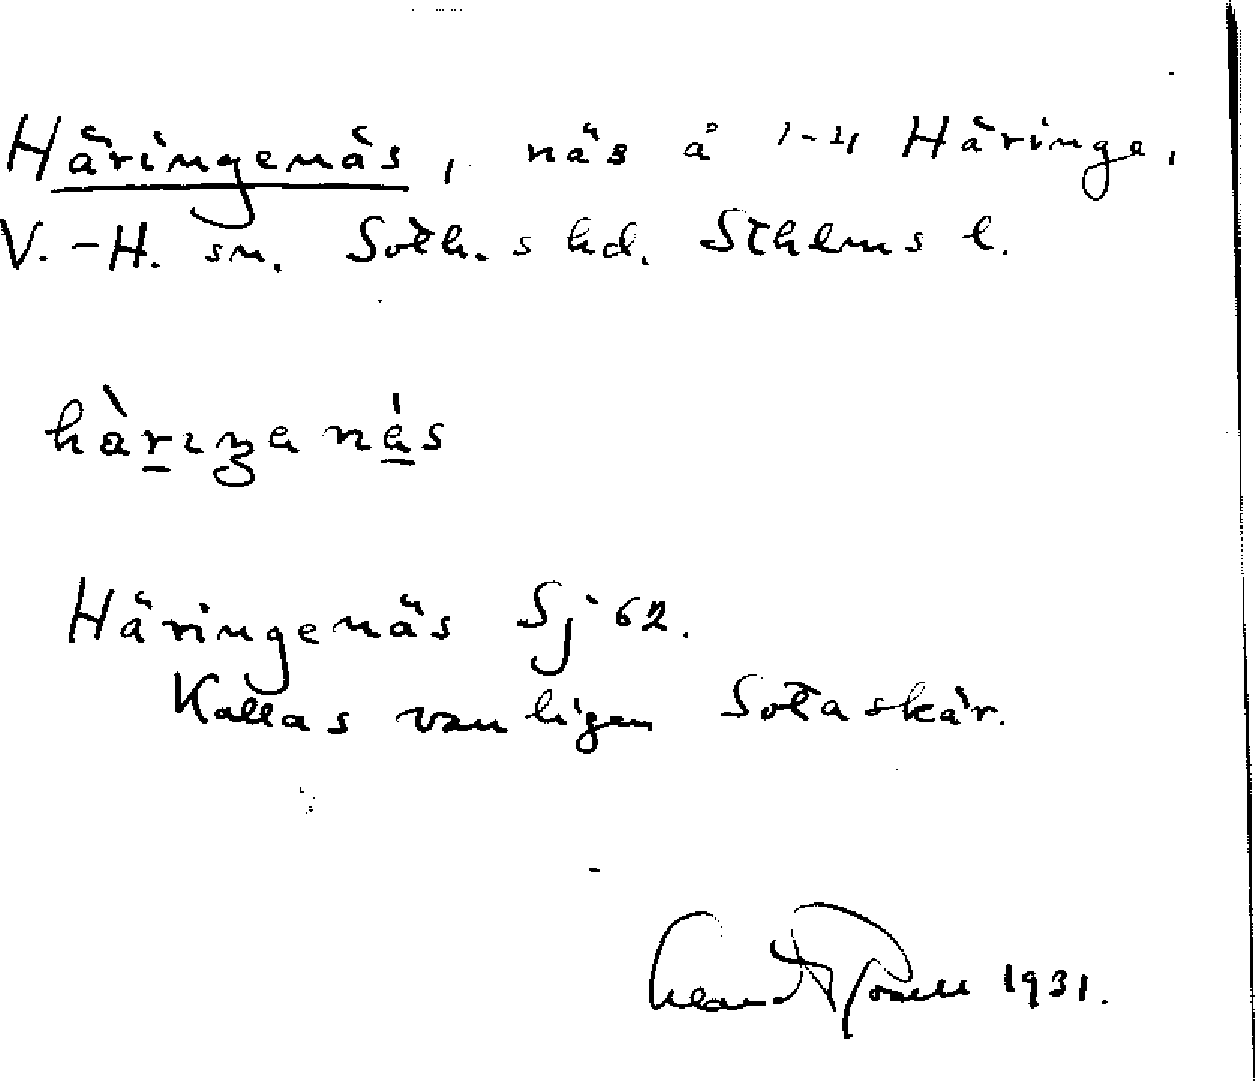 Häringenäs, näs å 1-4 Häringe,
V.-H. sn. Soth.s hd. Sthlms l.
Häringenäs Sj 62.
Kallas vanligen Sotaskär.
1931.